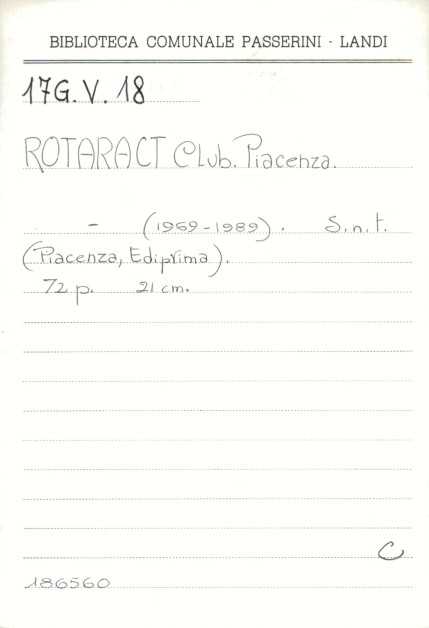 BIBLIOTECA COMUNALE PASSERINI - LANDI
17G. V. 18
ROTARACT Club. Piacenza.
- (1969-1989). S.n.t.
(Piacenza, Ediprima).
72 p. 21 cm.
C
186560